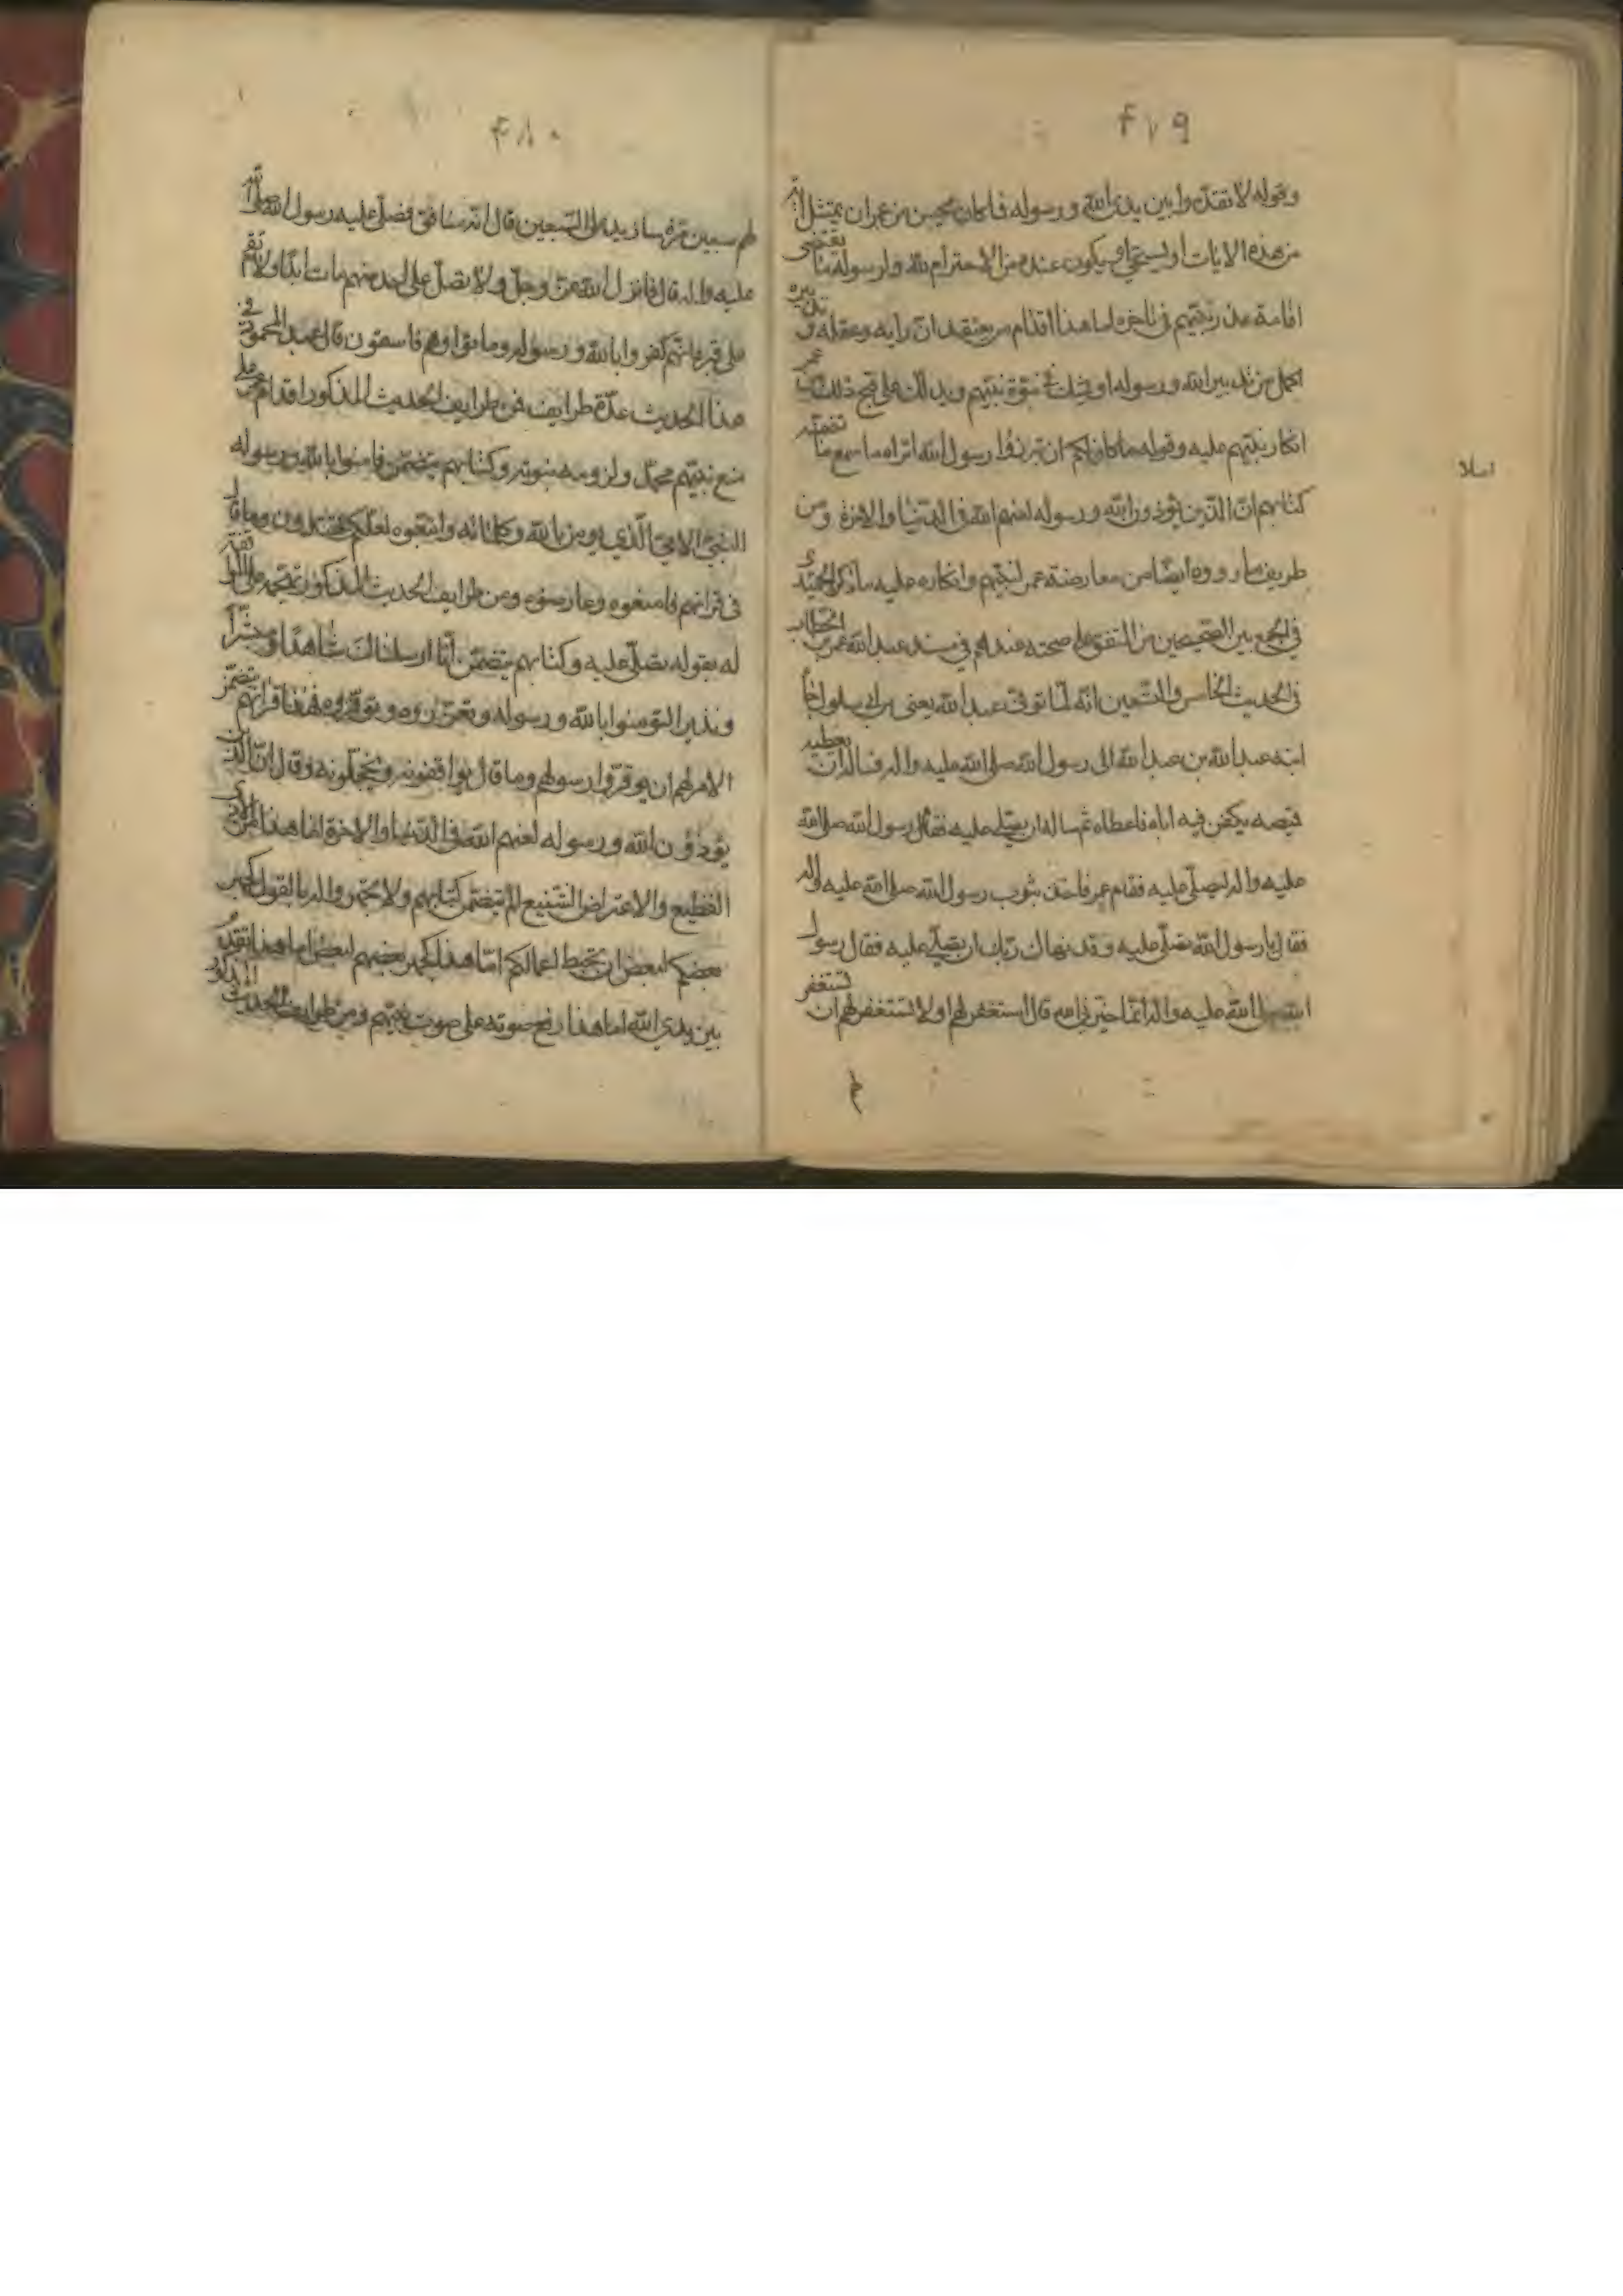 ٤١٩
وقوله لا تقدموا بين يدى الله ورسوله فما كان يحسن من عمر ان يمتثل
من هذه الايات او يستحيى ويكون عنده من الاحترام لله ولرسوله ما يقتضى
اقامة عذر نبيهم فى تاخره اما هذا اقدام من يعتقد ان رايه وعقله و تدبيره
اكمل من تدبير الله ورسوله او يشك فى نبوة نبيهم ويدلك على قبح ذلك من عمر
انكار نبيهم عليه وقوله ما كان لكم ان تنزروا رسول الله اتراه ما سمع ما تضمنه
كتابهم ان الذين يؤذون الله ورسوله لعنهم الله فى الدنيا والاخرة ومن
طريف ما رووه ايضا من معارضة عمر لنبيهم وانكاره عليه ما ذكره الحميدى
فى الجمع بين الصحيحين من المتفق على صحته عندهم فى مسند عبد الله بن عمر بن الخطاب
فى الحديث الخامس والتسعين انه لما توفى عبد الله يعنى بن ابى سلول جاء
ابنه عبد الله بن عبد الله الى رسول الله صلى الله عليه واله فساله ان يعطيه
قميصه يكفن فيه اباه فاعطاه ثم ساله ان يصلى عليه فقام رسول الله صلى الله
عليه واله ليصلى عليه فقام عمر فاخذ بثوب رسول الله صلى الله عليه واله
فقال يا رسول الله تصلى عليه وقد نهاك ربك ان تصلى عليه فقال رسول
الله صلى الله عليه واله انما خيرنى الله قال استغفر لهم او لا تستغفر لهم ان تستغفر
لهم
٤٨٠
لهم سبعين مرة وسازيده على السبعين قال انه منافق فصلى عليه رسول الله صلى الله
عليه واله قال فانزل الله عز وجل ولا تصل على احد منهم مات ابدا ولا تقم
على قبره انهم كفروا بالله ورسوله وماتوا وهم فاسقون قال عبد المحمود فى
هذا الحديث عدة طرايف فمن طرايف الحديث المذكور اقدام عمر على
منع نبيهم محمد ولزومه بثوبه وكتابهم يتضمن فامنوا بالله ورسوله
النبى الامى الذى يؤمن بالله وكلماته واتبعوه لعلكم تهتدون وما قال
فى قرانهم فامنعوه وعارضوه ومن طرايف الحديث المذكور
له بقوله تصلى عليه وكتابهم يتضمن انا ارسلناك شاهدا ومبشرا
ونذيرا لتؤمنوا بالله ورسوله وتعزروه وتوقروه فهذا قرانهم يتضمن
الامر لهم ان يوقروا رسولهم وما قال يواقفونه ويخجلونه وقال ان الذين
يؤذون الله ورسوله لعنهم الله فى الدنيا والاخرة اما هذا من الاذى
الفظيع والاعتراض الشنيع الم يتضمن كتابهم ولا تجهروا له بالقول كجهر
بعضكم لبعض ان تحبط اعمالكم اما هذا كجهر بعضهم لبعض اما هذا تقدم
بين يدى الله اما هذا رفع صوته على صوت نبيهم ومن طرايف الحديث المذكور